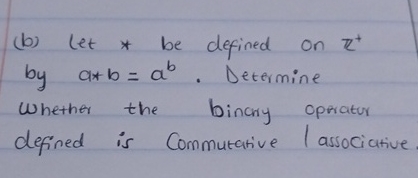 (b) let * be defined on Z⁺
by a*b = aᵇ. Determine
whether the binary operator
defined is commutative / associative.